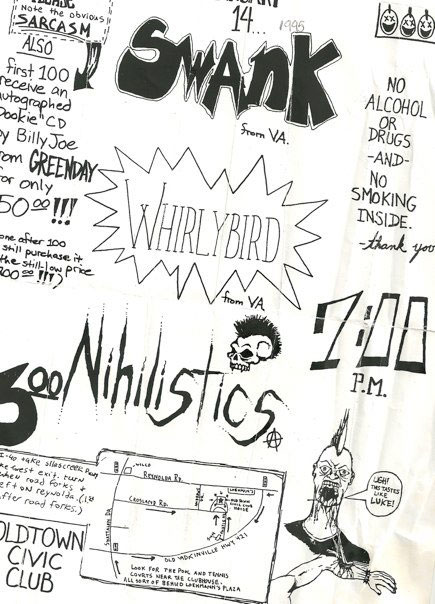 Note the obvious
SARCASM
14... 1995
ALSO
first 100
receive an
autographed
"Dookie" CD
by Billy Joe
from GREENDAY
for only
50 00!!!
one after 100
still purchase it
the still-low price
SWANK
from VA.
NO
ALCOHOL
OR
DRUGS
-AND-
NO
SMOKING
INSIDE.
-thank you
WHIRLYBIRD
from VA
7:00
P.M.
00
Nihilistics
I-40 take silascreek Pkwy
west exit. turn
when road forks
left on reynolda. (1st
after road forks.)
OLDTOWN
CIVIC
CLUB
REYNOLDA RD.
OLD TOWN
CIVIC CLUB
HOUSE
OLD YADKINVILLE HWY 421
LOOK FOR THE POOL AND TENNIS
COURTS NEAR THE CLUBHOUSE.
ALL SORT OF BEHIND LOEHMANN'S PLAZA
UGH!
THIS TASTES
LIKE
LUKE!